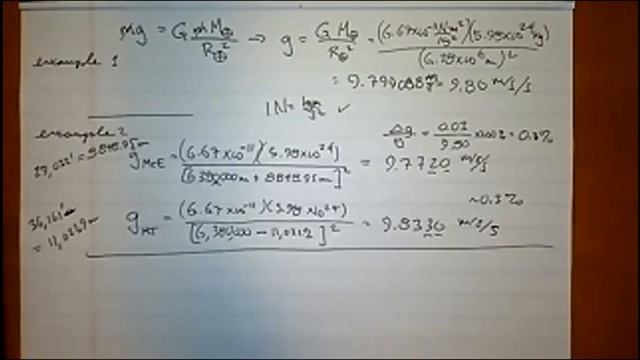 mg = G mM⊕/R⊕² → g = G M⊕/R⊕² = (6.67×10⁻¹¹ N m²/kg²)(5.98×10²⁴ kg)/(6.38×10⁶ m)²
example 1
= 9.799088 = 9.80 m/s/s
1N = ✓
example 2
29,022' = 8848.85m
g_McE = (6.67×10⁻¹¹)(5.98×10²⁴)/[6380,000m + 8848.85m]² = 9.7720 m/s/s
Δg/g = 0.03/9.80 ×100% = 0.3%
~0.3%
g_MT = (6.67×10⁻¹¹)(5.98×10²⁴)/[6,380,000 − ]² = 9.8330 m/s/s